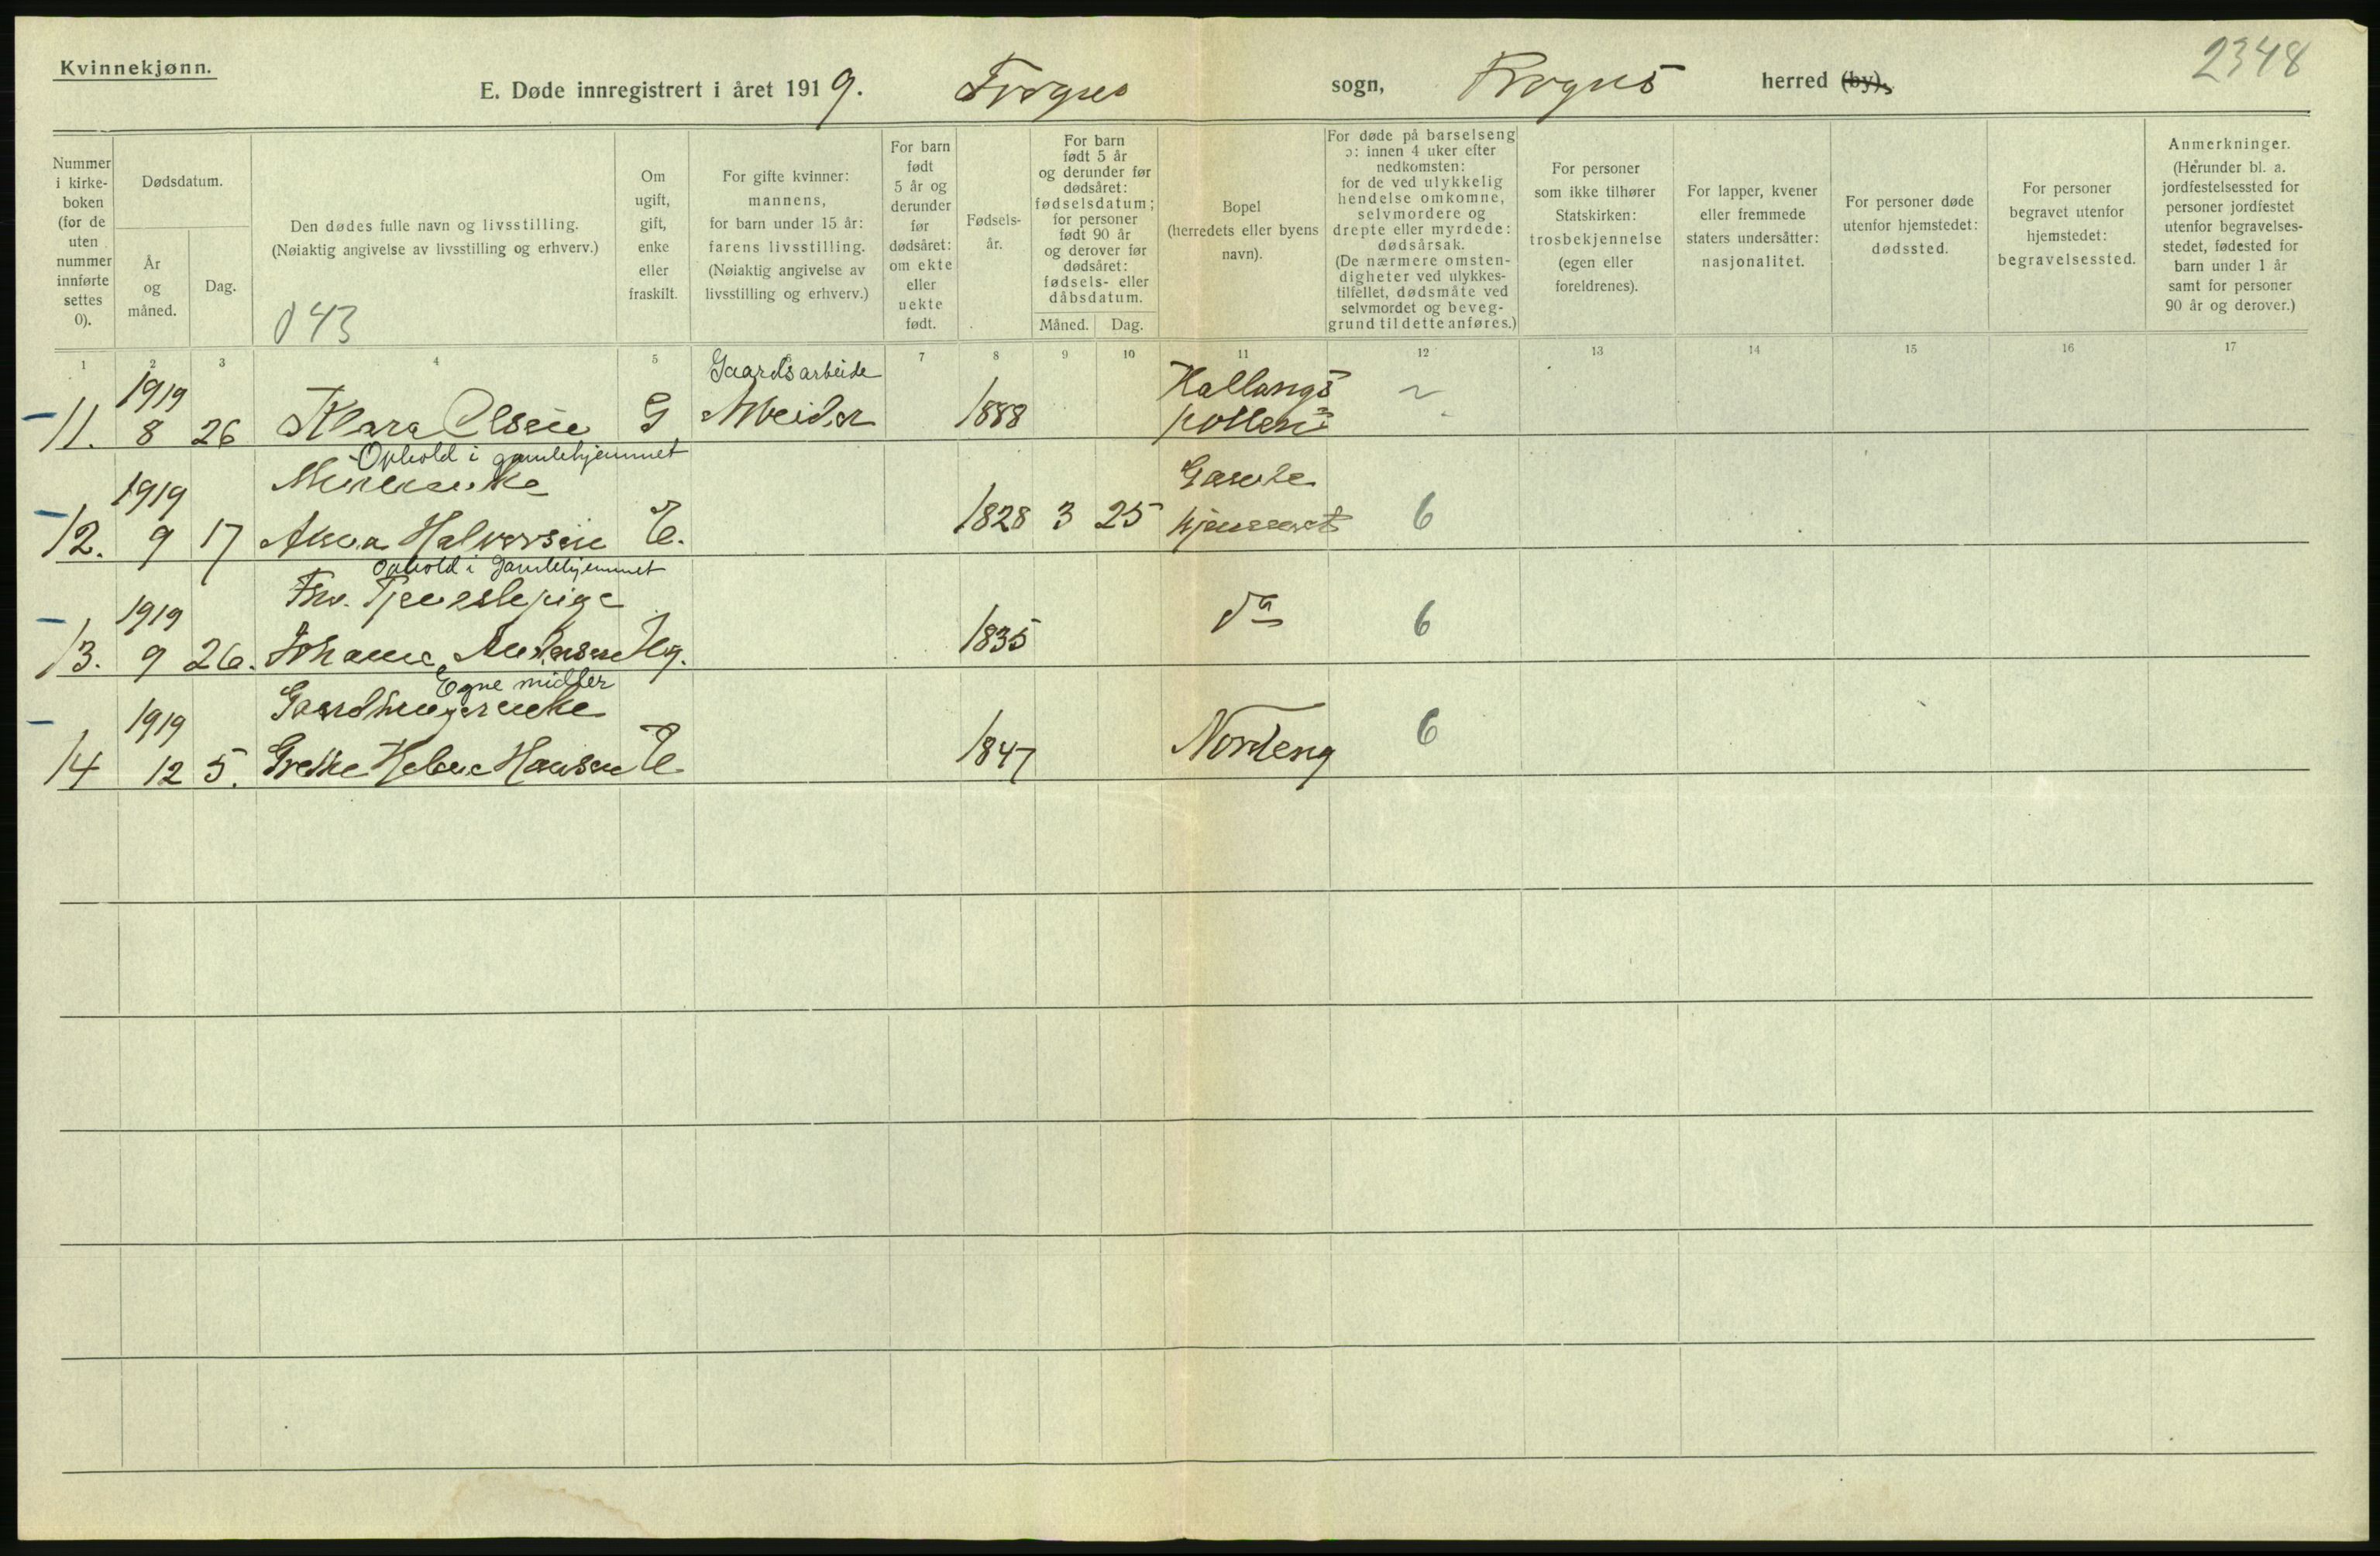 Kvinnekjønn.
2348
E. Døde innregistrert i året 1919. Frogn sogn, Frogn herred (by).
Nummer i kirke-boken (for de uten nummer innførte settes 0).
Dødsdatum.
År og måned.
Dag.
Den dødes fulle navn og livsstilling.
(Nøiaktig angivelse av livsstilling og erhverv.)
043
Om ugift, gift, enke eller fraskilt.
For gifte kvinner: mannens, for barn under 15 år: farens livsstilling.
(Nøiaktig angivelse av livsstilling og erhverv.)
For barn født 5 år og derunder før dødsåret: om ekte eller uekte født.
Fødsels-år.
For barn født 5 år og derunder før dødsåret: fødselsdatum; for personer født 90 år og derover før dødsåret: fødsels- eller dåbsdatum.
Måned.
Dag.
Bopel
(herredets eller byens navn).
For døde på barselseng ɔ: innen 4 uker efter nedkomsten: for de ved ulykkelig hendelse omkomne, selvmordere og drepte eller myrdede: dødsårsak.
(De nærmere omsten-digheter ved ulykkes-tilfellet, dødsmåte ved selvmordet og beveg-grund til dette anføres.)
For personer som ikke tilhører Statskirken: trosbekjennelse (egen eller foreldrenes).
For lapper, kvener eller fremmede staters undersåtter: nasjonalitet.
For personer døde utenfor hjemstedet: dødssted.
For personer begravet utenfor hjemstedet: begravelsessted.
Anmerkninger.
(Herunder bl. a. jordfestelsessted for personer jordfestet utenfor begravelses-stedet, fødested for barn under 1 år samt for personer 90 år og derover.)
1 2 3 4 5 7 8 9 10 11 12 13 14 15 16 17
1919 Gaardsarbeide Hallangs
11. 8 26 Klara Olsen G Arbeider 1888 pollen
Ophold i gamlehjemmet
1919 Gamle
12. 9 17 Anna Halvorsen E. 1828 3 25 hjemmet 6
Ophold i Gamlehjemmet
1919 Fhv. Tjenestepige do
13. 9 26. Johanne Andersen Ug. 1835 6
Egne midler
1919 Gaardbrugerenke
14 12 5. Grethe Helene Hansen E 1847 Nordeng 6